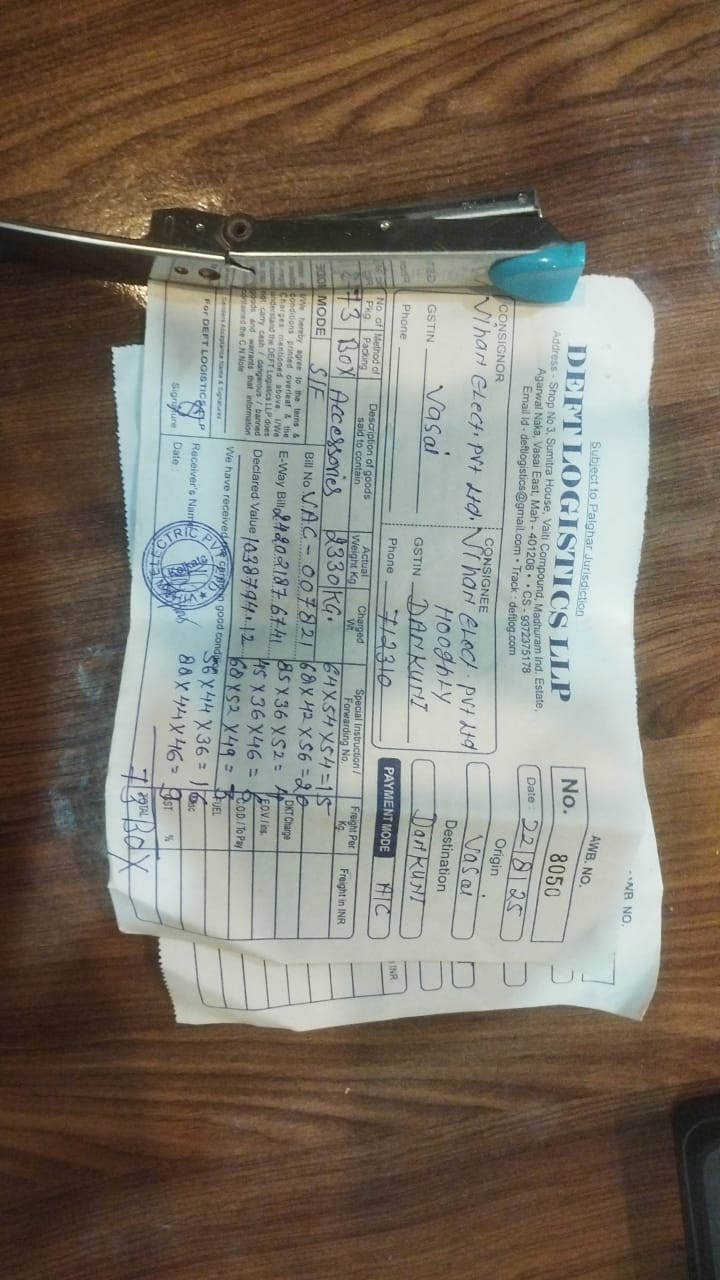 Subject to Palghar Jurisdiction
DEFT LOGISTICS LLP
Address - Shop No 3, Sumitra House, Valti Compound, Madhuram Ind. Estate,
Agarwal Naka, Vasai East, Mah - 401208 • • CS - 9372375178
Email Id - deftlogistics@gmail.com • Track : deftlog.com
AWB. NO.
No. 8050
Date : 22/8/25
CONSIGNOR
Vihan Elect. Pvt Ltd.
Vasai
GSTIN
Phone
CONSIGNEE
Vihan Elect. Pvt Ltd
Hooghly
GSTIN DANKUNI
Phone 712310
Origin
Vasai
Destination
DANKUNI
PAYMENT MODE A/C
No. of Pkg. Method of Packing Description of goods said to contain Actual Weight Kg Charged Wt. Special Instruction / Forwarding No. Freight Per Kg. Freight in INR
73 Box Accessories 2330 KG. 64X54X54=15
MODE S/F Bill No. VAC-007821 68X42X56=20
E-Way Bill 85X36X52=
DKT Charge
Declared Value 1038794.12 45X36X46=
F.O.V / Ins.
68X52X49=
C.O.D. / To Pay
I/We hereby agree to the terms &
conditions printed overleaf & the
Charges mentioned above I/We
understand the DEFT Logistics LLP does
not carry cash / dangerous / banned
goods and warrants that information
contained the C.N Note
Sender's Acceptance Name & Signatures
We have received the good condition
56X44X36=
FUEL
For DEFT LOGISTICS LLP
Receiver's Name
80X44X46=
Signature
Date :
GST %
TOTAL
73 BOX
ELECTRIC
Kolkata
WB. NO.
INR